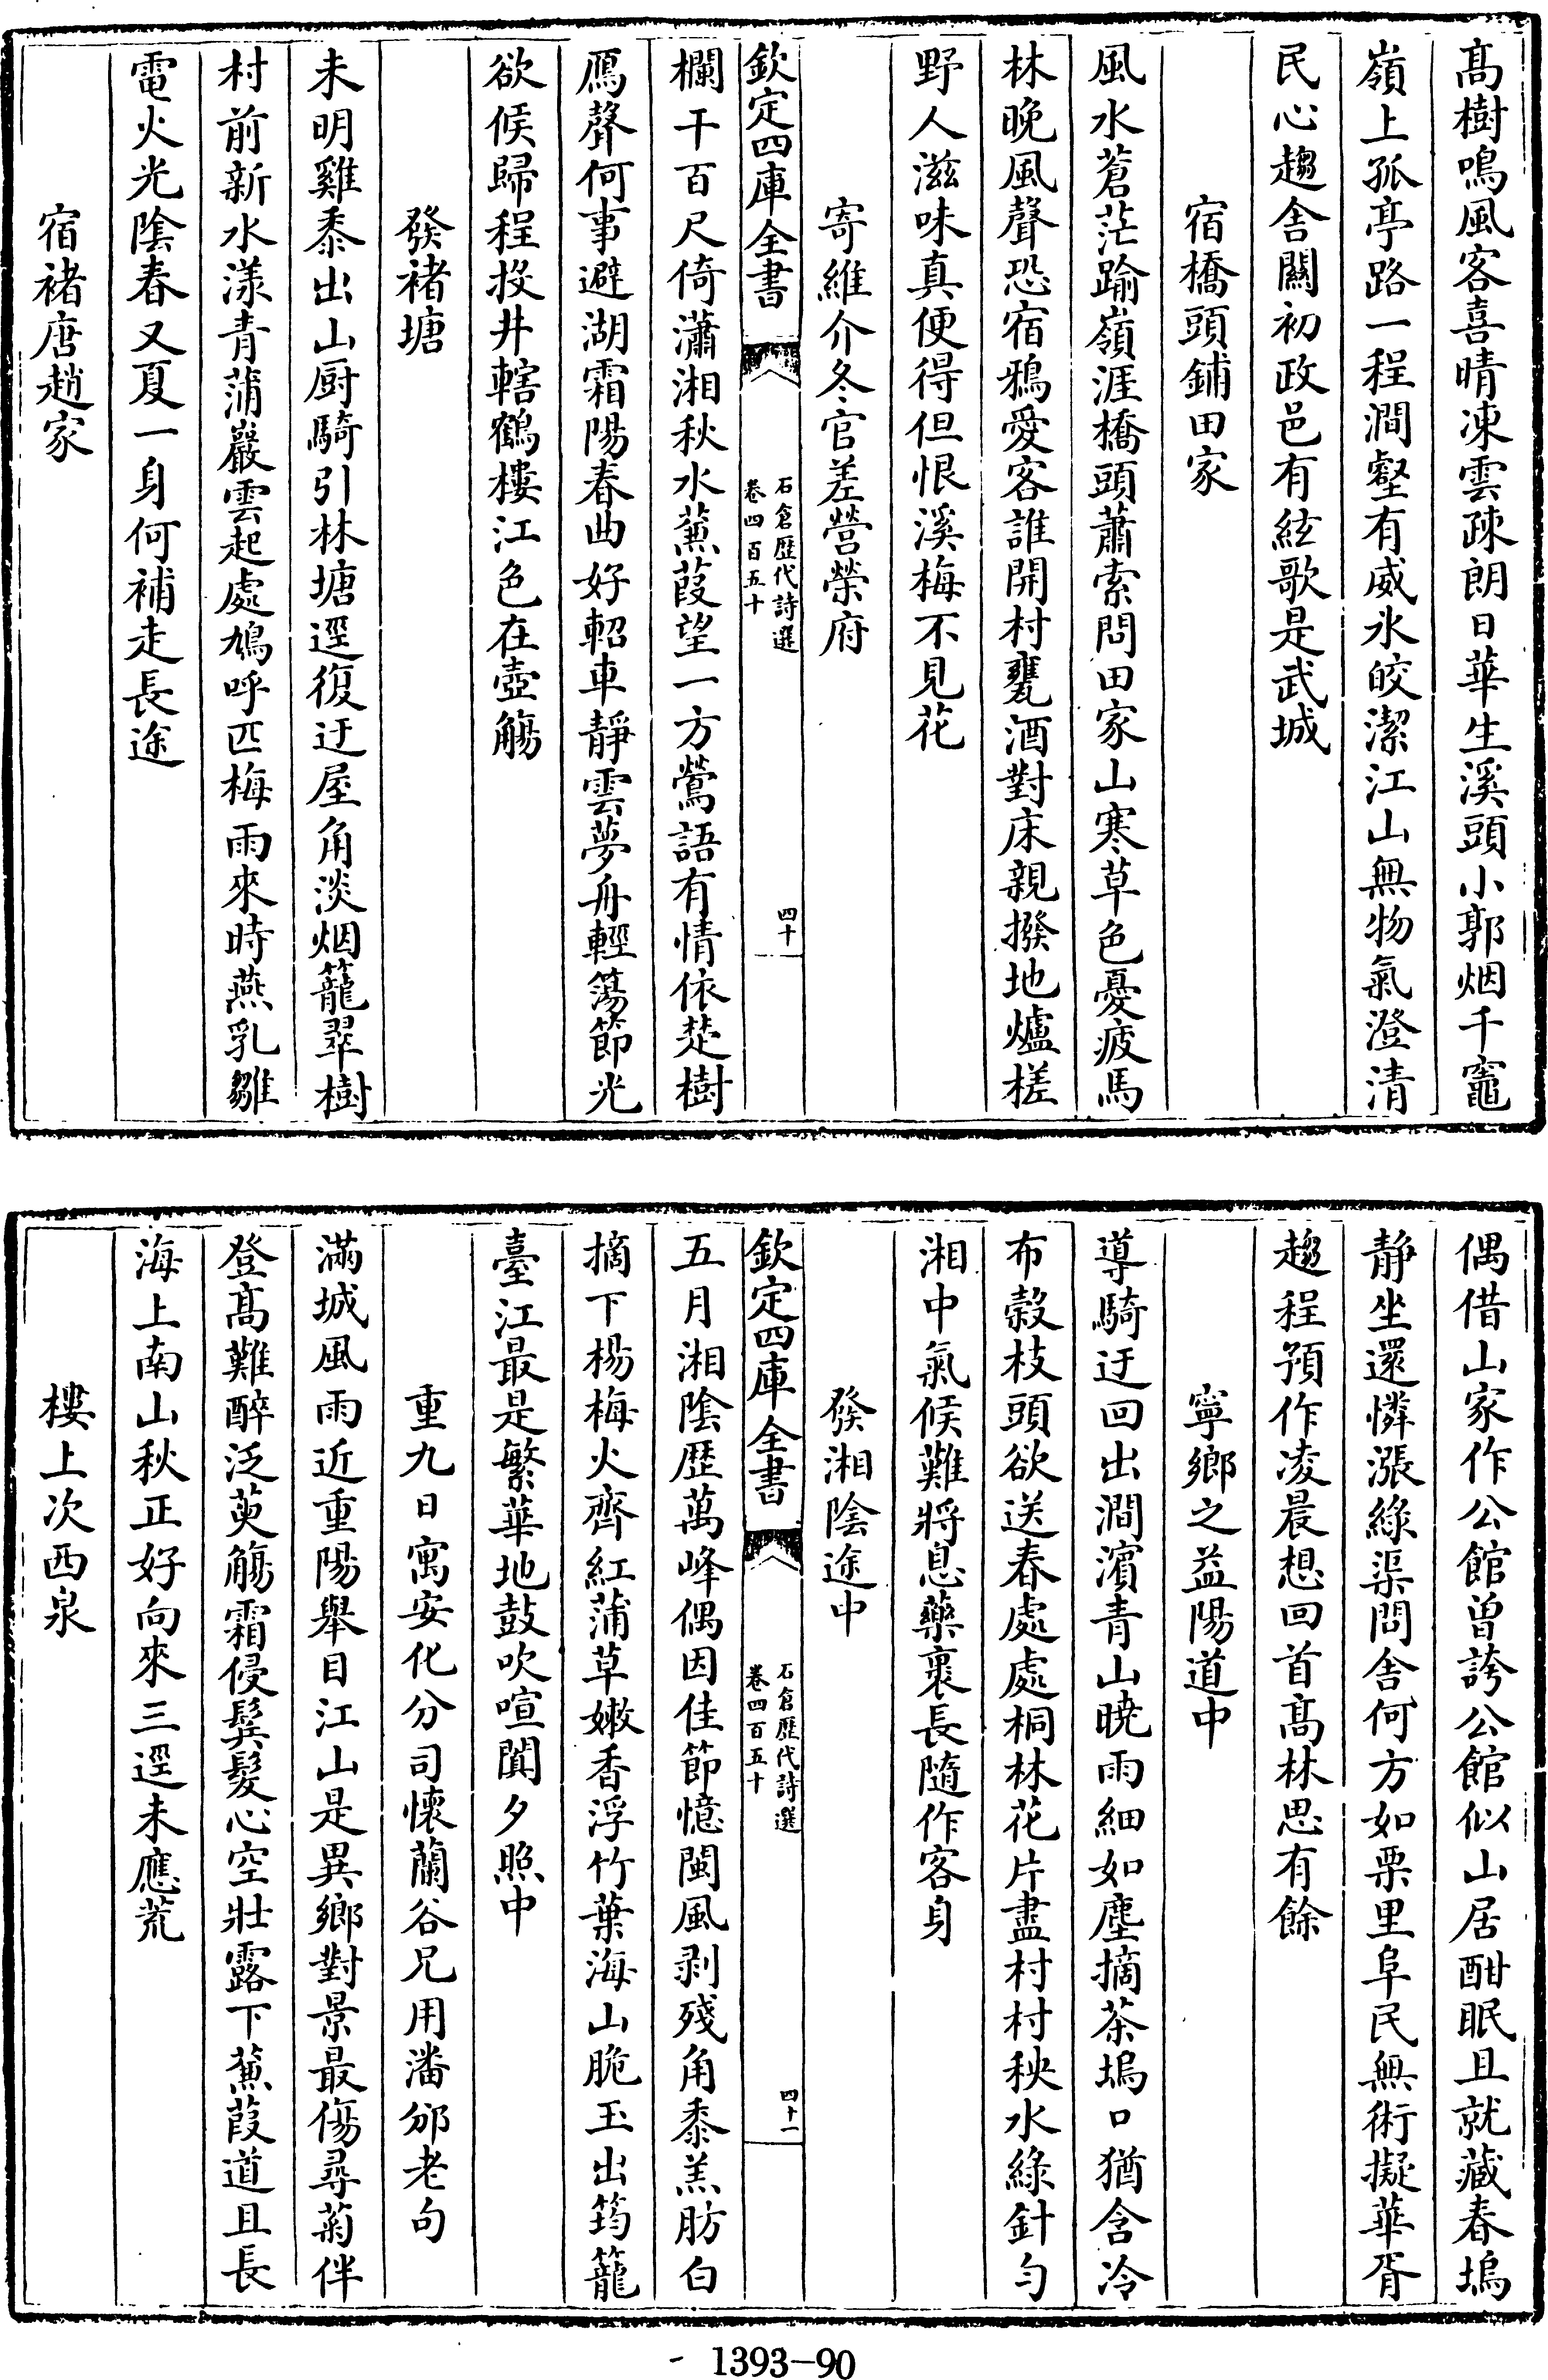 髙樹鳴風客喜晴凍雲疎朗日華生溪頭小郭烟千竈
嶺上孤亭路一程澗壑有威氷皎潔江山無物氣澄清
民心趨舎闗初政邑有絃歌是武城
宿橋頭鋪田家
風水蒼茫踰嶺涯橋頭蕭索問田家山寒草色憂疲馬
林晚風聲恐宿鴉愛客誰開村甕酒對床親撥地爐槎
野人滋味真便得但恨溪梅不見花
寄維介冬官差營榮府
欽定四庫全書
石倉歷代詩選
卷四百五十
四十
欄干百尺倚瀟湘秋水蒹葭望一方鶯語有情依楚樹
鴈聲何事避湖霜陽春曲好軺車靜雲夢舟輕蕩節光
欲候歸程投井轄鶴樓江色在壺觴
發褚塘
未明雞黍出山厨騎引林塘逕復迂屋角淡烟籠翠樹
村前新水漾青蒲巖雲起處鳩呼匹梅雨來時燕乳雛
電火光陰春又夏一身何補走長途
宿褚唐趙家
偶借山家作公館曽誇公館似山居酣眠且就藏春塢
静坐還憐漲綠渠問舎何方如栗里阜民無術擬華胥
趨程預作凌晨想回首髙林思有餘
寧鄉之益陽道中
導騎迂回出澗濱青山曉雨細如塵摘茶塢口猶含冷
布穀枝頭欲送春處處桐林花片盡村村秧水綠針勻
湘中氣候難將息藥裹長隨作客身
發湘陰途中
欽定四庫全書
石倉歷代詩選
卷四百五十
四十一
五月湘陰歷萬峰偶因佳節憶閩風剥殘角黍羔肪白
摘下楊梅火齊紅蒲草嫩香浮竹葉海山脆玉出筠籠
臺江最是繁華地鼓吹喧闐夕照中
重九日寓安化分司懷蘭谷兄用潘邠老句
滿城風雨近重陽舉目江山是異鄉對景最傷尋菊伴
登髙難醉泛萸觴霜侵鬓髮心空壯露下蒹葭道且長
海上南山秋正好向來三逕未應荒
樓上次西泉
1393-90